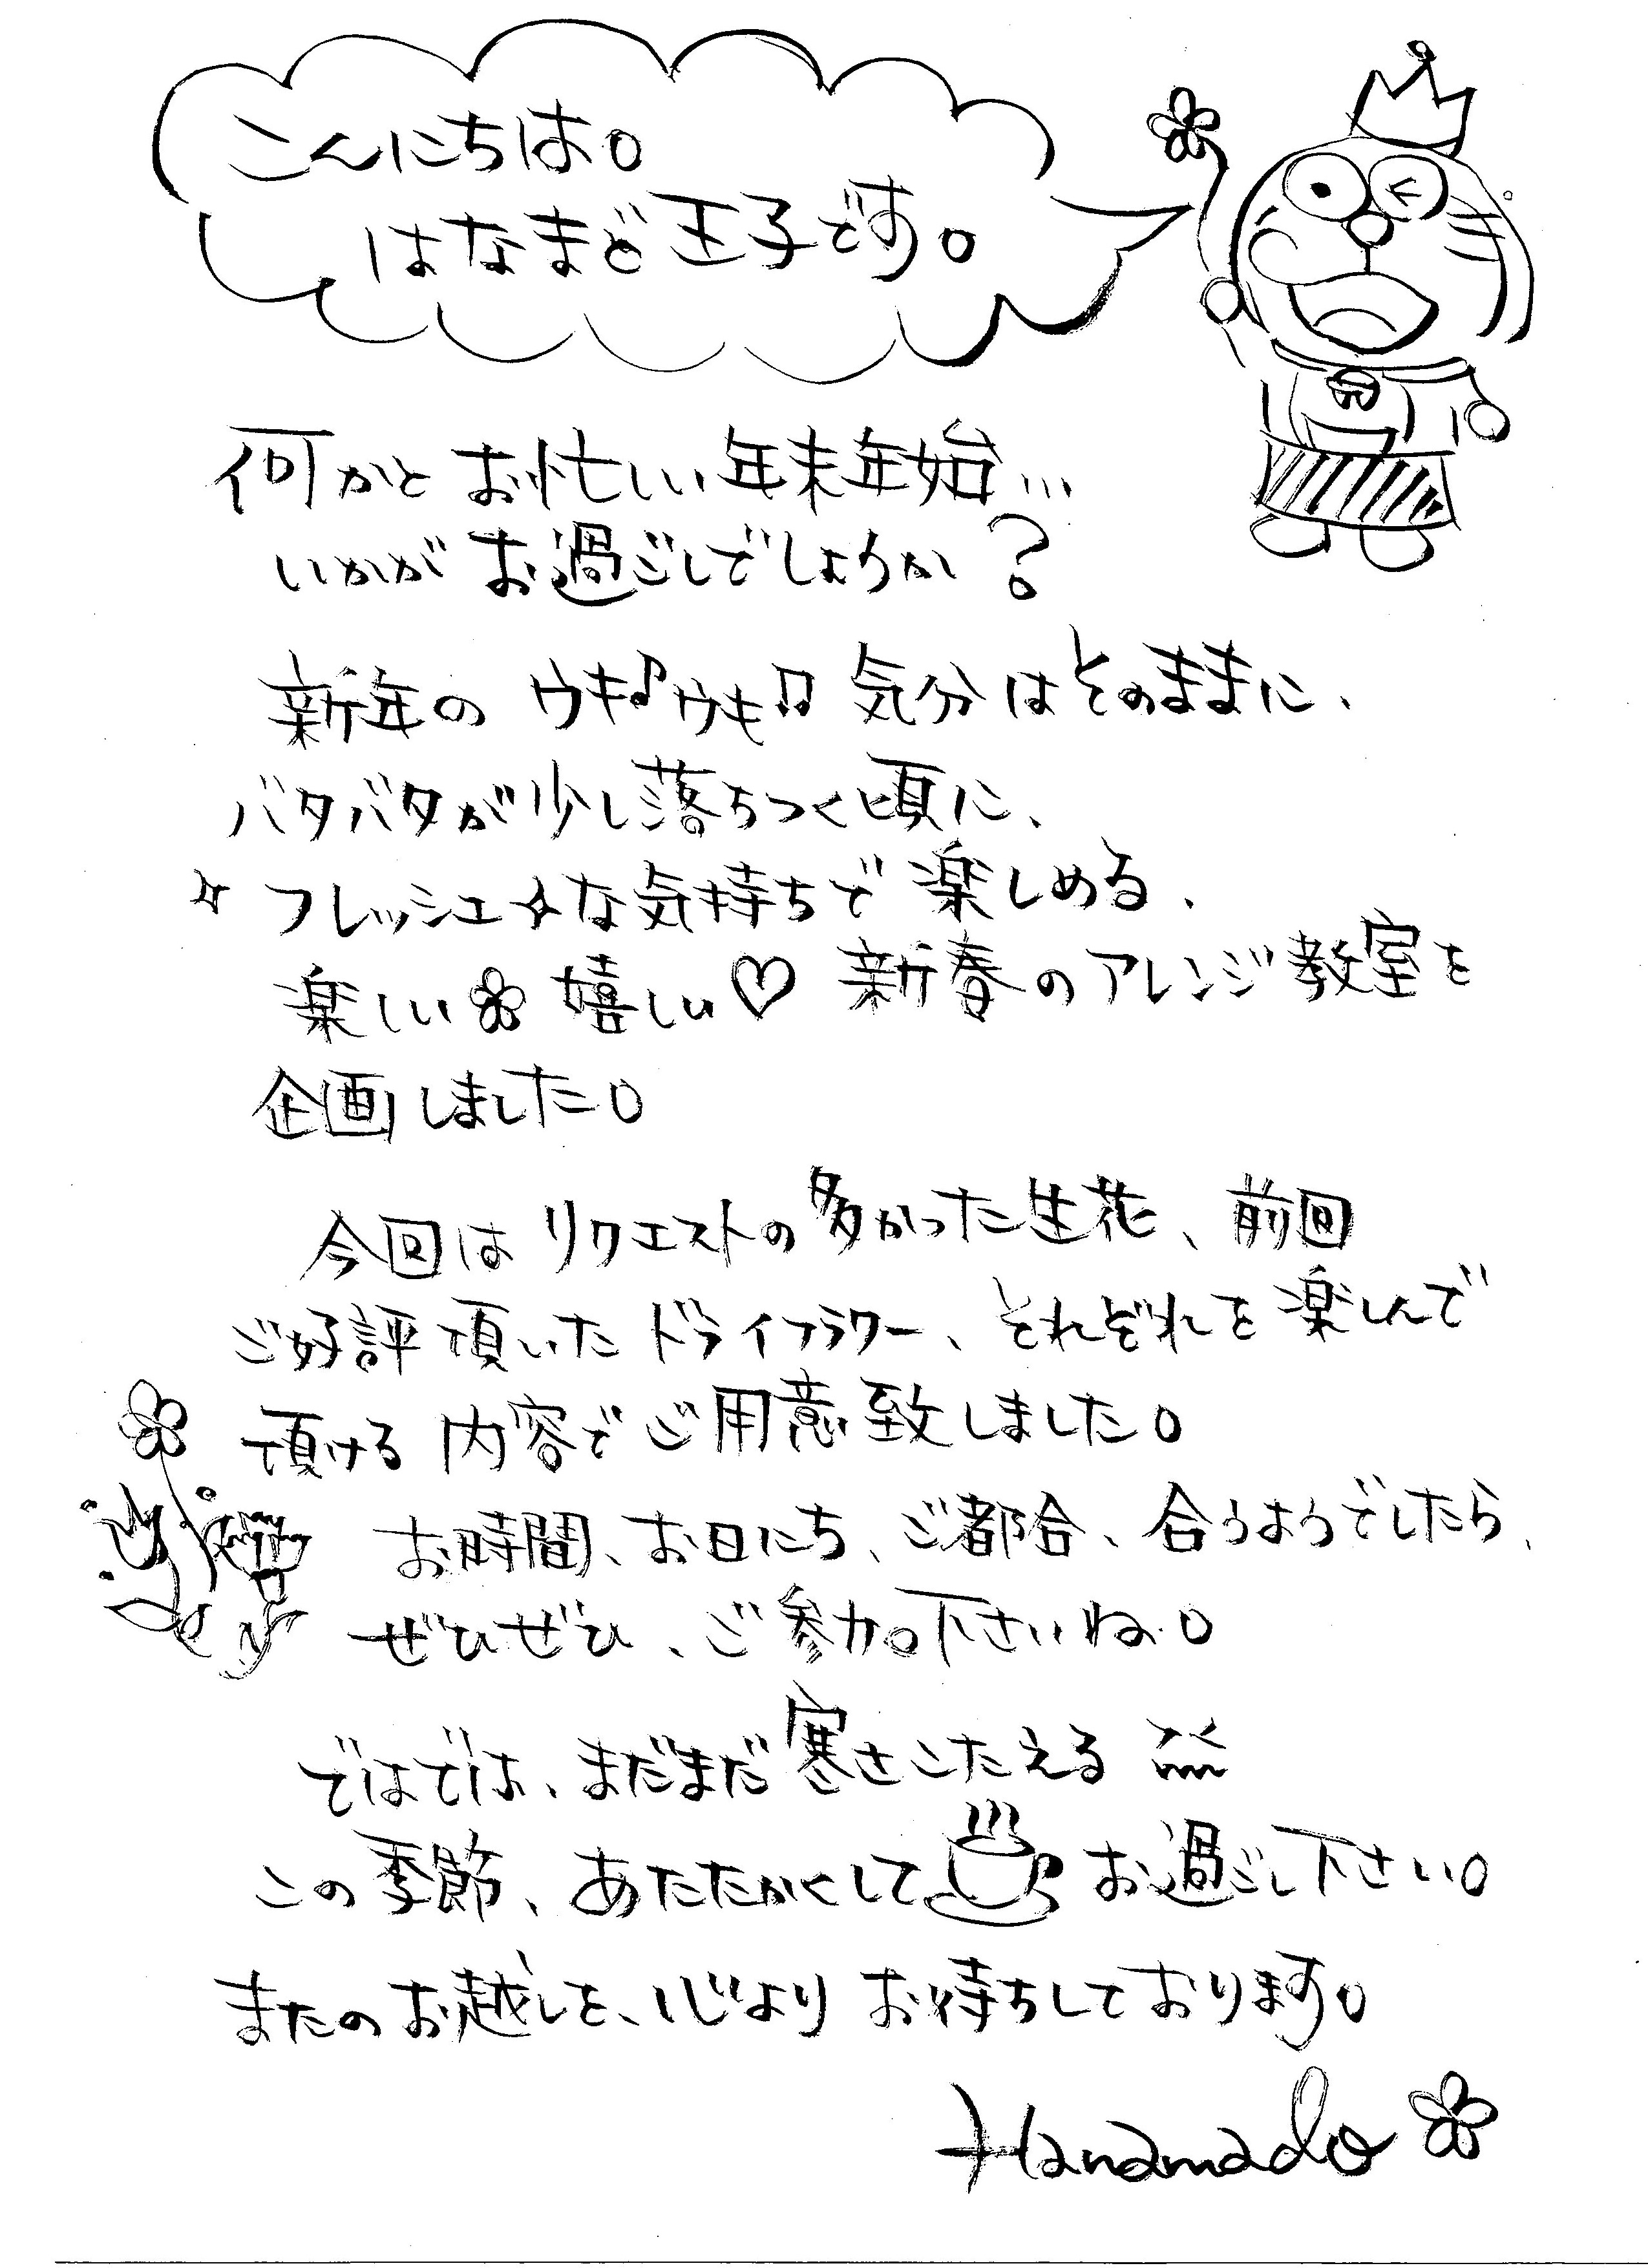 こんにちは。
はなまど王子です。
何かとお忙しい年末年始…
いかがお過ごしでしょうか?
新年のウキ♪ウキ♫気分はそのままに、
バタバタが少し落ちつく頃に、
フレッシュ☆な気持ちで楽しめる、
楽しい 嬉しい♡ 新春のアレンジ教室を
企画しました。
今回はリクエストの多かった生花、前回
ご好評頂いたドライフラワー、それぞれを楽しんで
頂ける内容でご用意致しました。
お時間、お日にち、ご都合、合うようでしたら、
ぜひぜひ、ご参加下さいね。
ではでは、まだまだ寒さこたえる
この季節、あたたかくして お過ごし下さい。
またのお越しを、心よりお待ちしております。
Hanamado